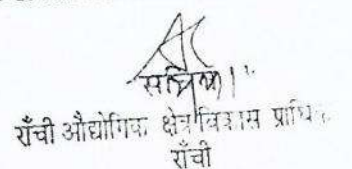 सचिव।
राँची औद्योगिक क्षेत्र विकास प्राधि
राँची